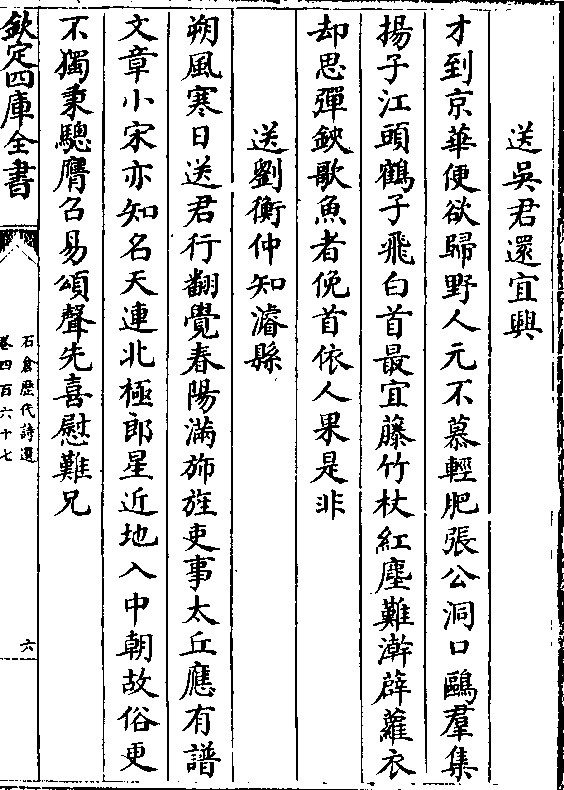 送吳君還宜興
才到京華便欲歸野人元不慕輕肥張公洞口鷗羣集
揚子江頭鶴子飛白首最宜藤竹杖紅塵難澣薜蘿衣
却思彈鋏歌魚者俛首依人果是非
送劉衡仲知濬縣
朔風寒日送君行翻覺春陽滿斾旌吏事太丘應有譜
文章小宋亦知名天連北極郎星近地入中朝故俗更
不獨乗驄膺召易頌聲先喜慰難兄
欽定四庫全書
石倉歴代詩選
卷四百六十七
六